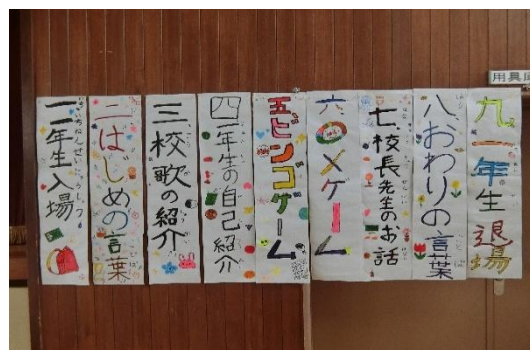 一 一年生入場
二 はじめの言葉
三 校歌の紹介
四 一年生の自己紹介
五 ビンゴゲーム
六 〇×ゲーム
七 校長先生のお話
八 おわりの言葉
九 一年生退場
用具